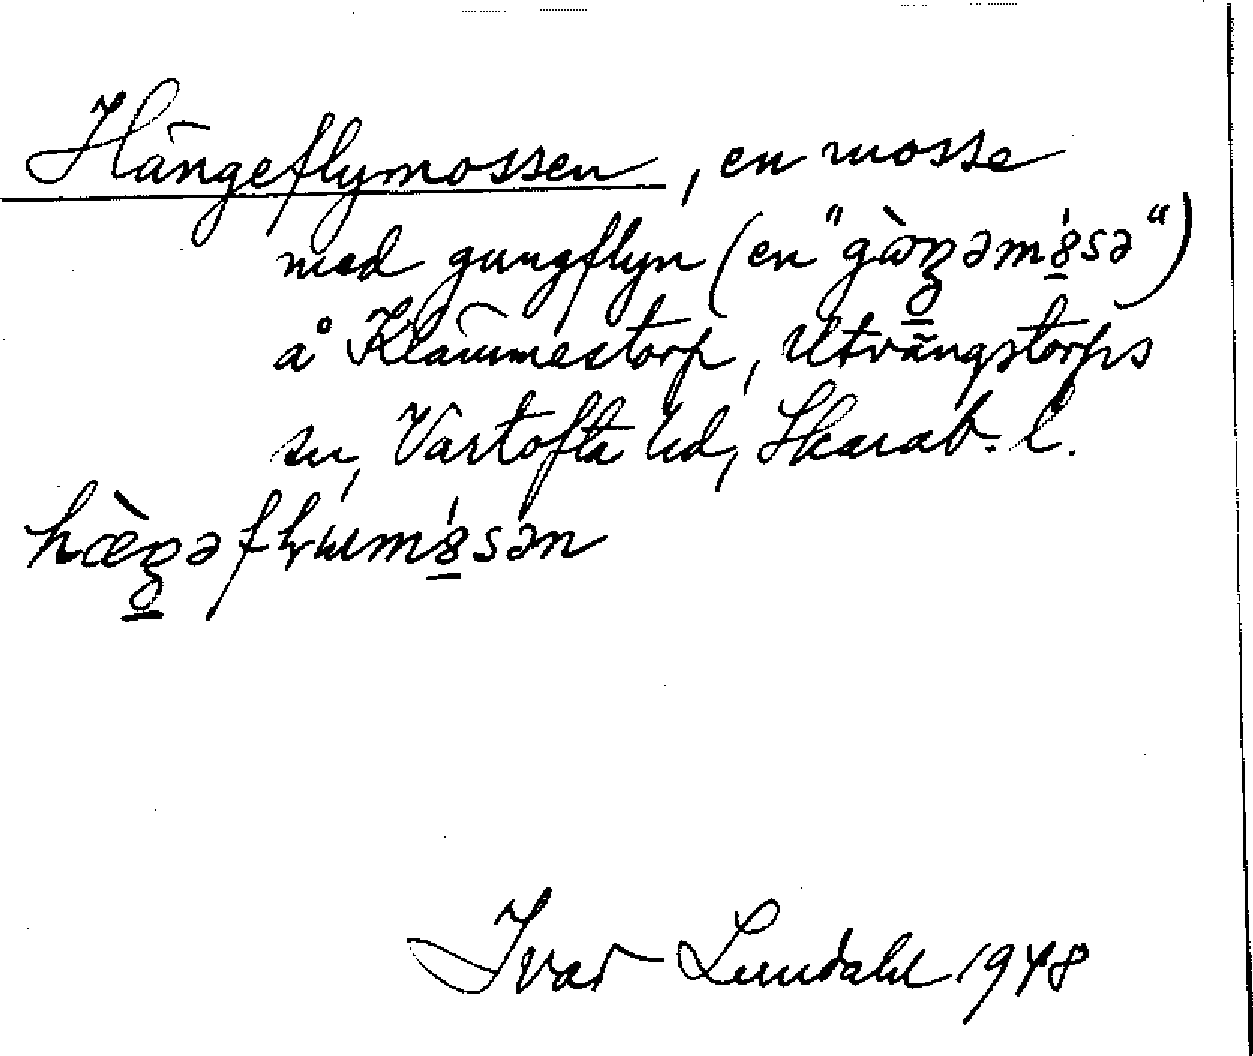 Hängeflymossen, en mosse
med gungflyn (en "gòŋəm8́sə")
å Klämmestorp, Utvängstorps
sn, Vartofta hd, Skarab. l.
hæ̀ŋəflym8́sən
Ivar Lundahl 1948